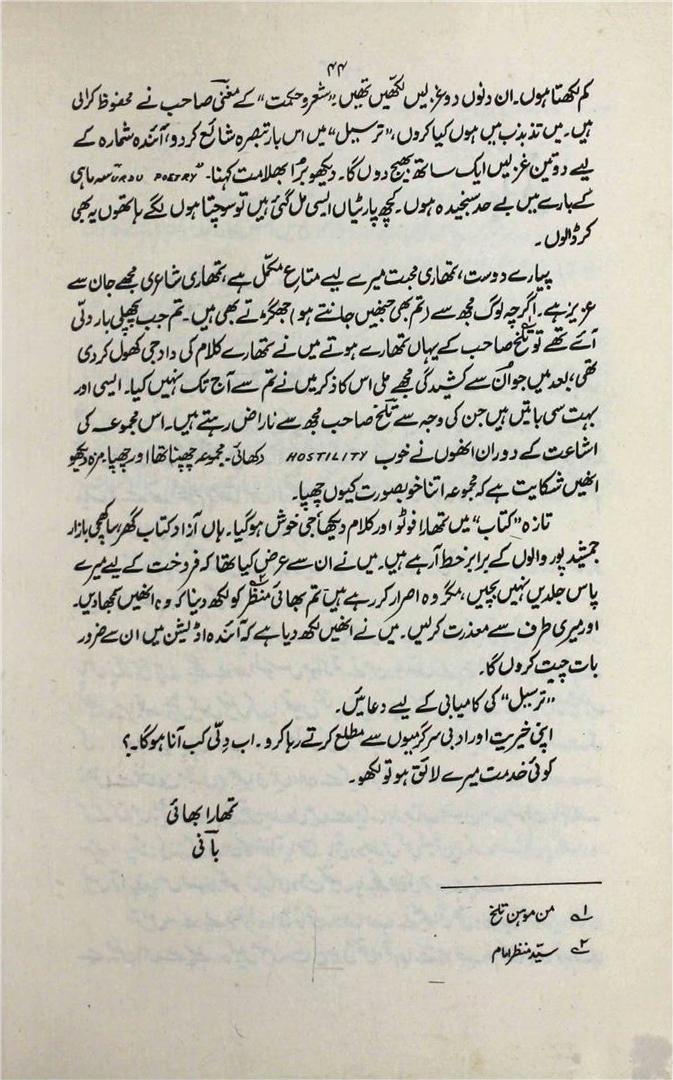 ۴۴
کم لکھتا ہوں۔ ان دنوں دو غزلیں لکھیں تھیں، ”شعر و حکمت“ کے مغنی صاحب نے محفوظ کرالی
ہیں۔ میں تذبذب میں ہوں کیا کروں، ”ترسیل“ میں اس بار تبصرہ شائع کردو، آئندہ شمارہ کے
لیے دو تین غزلیں ایک ساتھ بھیج دوں گا۔ دیکھو برا بھلا مت کہنا۔ ”URDU POETRY“ سہ ماہی
کے بارے میں بے حد سنجیدہ ہوں۔ کچھ پارٹیاں ایسی مل گئی ہیں تو سوچتا ہوں لگے ہاتھوں یہ بھی
کر ڈالوں۔
پیارے دوست، تمھاری محبت میرے لیے متاعِ مکمّل ہے، تمھاری شاعری مجھے جان سے
عزیز ہے۔ اگرچہ لوگ مجھ سے (تم بھی جنھیں جانتے ہو) جھگڑتے بھی ہیں۔ تم جب پچھلی بار دلّی
آئے تھے تو تلخؔ۱ صاحب کے یہاں تمھارے ہوتے میں نے تمھارے کلام کی داد جی کھول کر دی
تھی، بعد میں جو اُن سے کشیدگی مجھے ملی اس کا ذکر میں نے تم سے آج تک نہیں کیا۔ ایسی اور
بہت سی باتیں ہیں جن کی وجہ سے تلخؔ صاحب مجھ سے ناراض رہتے ہیں۔ اس مجموعہ کی
اشاعت کے دوران انھوں نے خوب HOSTILITY دکھائی۔ مجموعہ چھپنا تھا اور چھپا۔ مزہ دیکھو
انھیں شکایت ہے کہ مجموعہ اتنا خوبصورت کیوں چھپا۔
تازہ ”کتاب“ میں تمھارا فوٹو اور کلام دیکھا، جی خوش ہوگیا۔ ہاں آزاد کتاب گھر، ساکچی بازار
جمشید پور والوں کے برابر خط آرہے ہیں۔ میں نے ان سے عرض کیا تھا کہ فروخت کے لیے میرے
پاس جلدیں نہیں بچیں، مگر وہ اصرار کر رہے ہیں تم بھائی منظر۲ کو لکھ دینا کہ وہ انھیں سمجھا دیں۔
اور میری طرف سے معذرت کرلیں۔ میں نے انھیں لکھ دیا ہے کہ آئندہ اڈیشن میں ان سے ضرور
بات چیت کروں گا۔
”ترسیل“ کی کامیابی کے لیے دعائیں۔
اپنی خیریت اور ادبی سرگرمیوں سے مطلع کرتے رہا کرو۔ اب دلّی کب آنا ہوگا۔؟
کوئی خدمت میرے لائق ہو تو لکھو۔
تمھارا بھائی
بانیؔ
۱ من موہن تلخ
۲ سیّد منظر امام